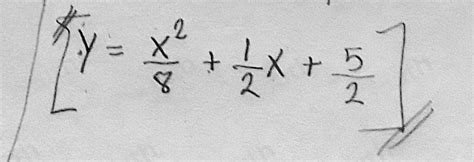 [y = x²/8 + 1/2 x + 5/2]